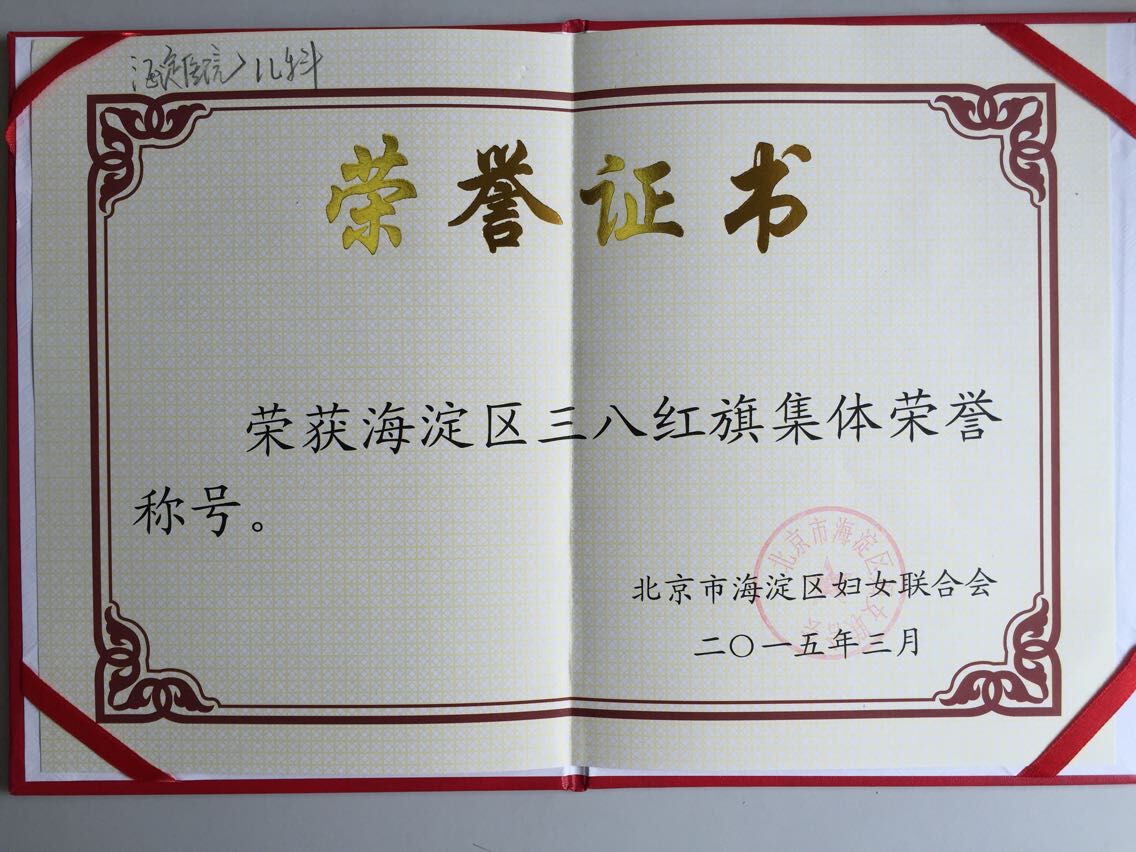 海淀医院儿科
荣誉证书
荣获海淀区三八红旗集体荣誉
称号。
北京市海淀区妇女联合会
二〇一五年三月
北京市海淀区妇女联合会